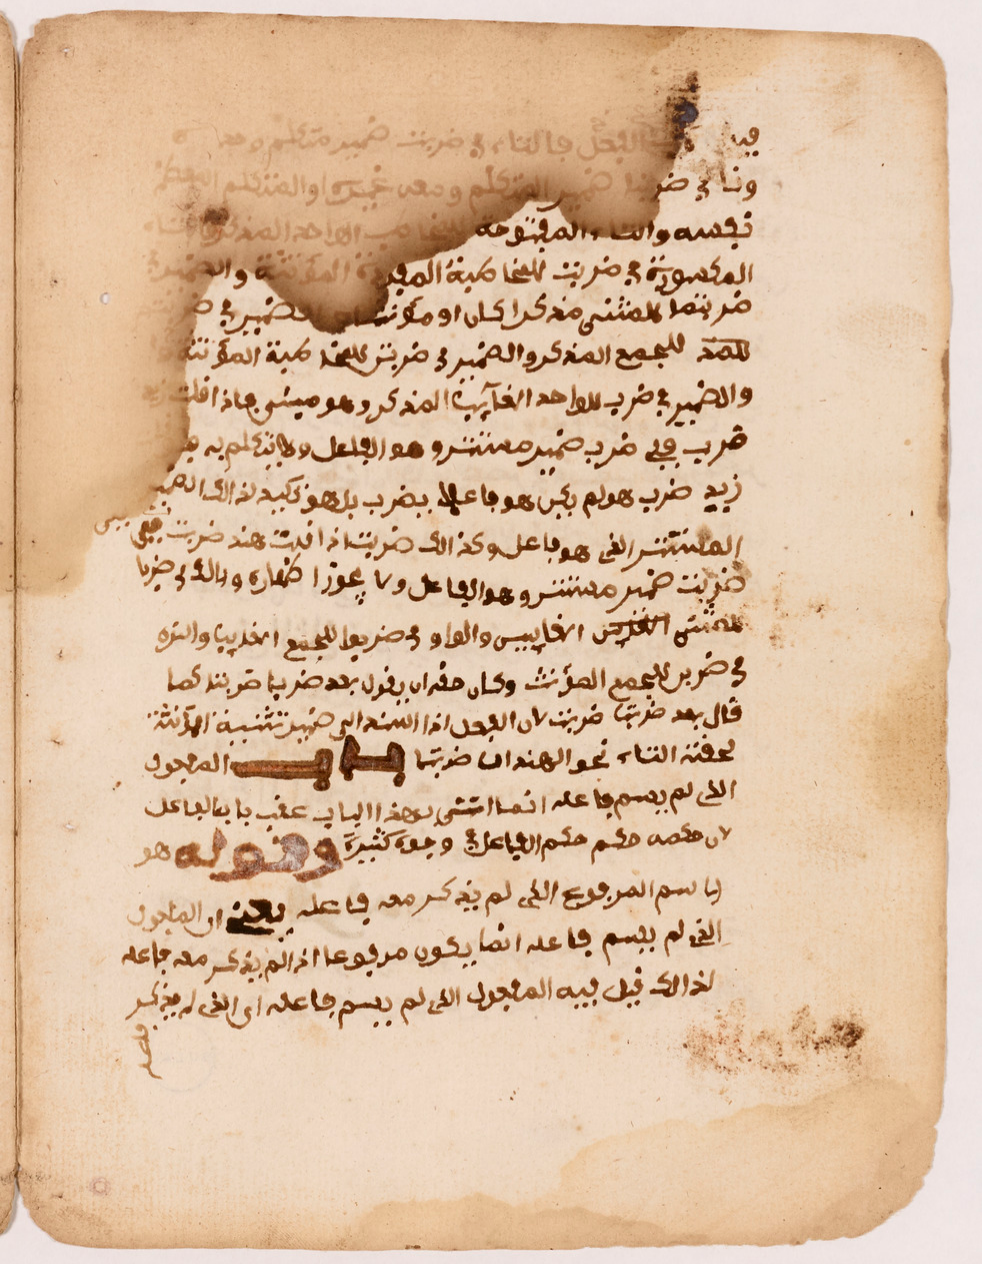 فيه الفعل فالتاء في ضربت ضمير متكلم وحده
ونا في ضربنا ضمير المتكلم ومعه غيره او المتكلم المعظم
نفسه والتاء المفتوحة للمخاطب الواحد المذكر والتاء
المكسورة في ضربت للمخاطبة المفردة المؤنثة والضمير في
ضربتما للمثنى مذكرا كان او مؤنثا والضمير في
للجمع المذكر والضمير في ضربتن للمخاطبة المؤنثة
والضمير في ضرب للواحد الغايب المذكر وهو مبني فاذا قلت زيد
ضرب ففي ضرب ضمير مستتر وهو الفاعل ولا يتكلم به
زيد ضرب هو لم يكن هو فاعلا بضرب بل هو توكيد لذالك الضمير
المستتر الذي هو فاعل وكذالك ضربت اذا قلت هند ضربت ففي
ضربت ضمير مستتر وهو الفاعل ولا يجوز اظهاره والالف في ضربا
للمثنى الغايبين والواو في ضربوا للجمع الغايب والنون
في ضربن للجمع المؤنث وكان حقه ان يقول بعد ضربا ضربتا كما
قال بعد ضربت لان الفعل اذا اسند الى ضمير تثنية المؤنث
لحقته التاء نحو الهندان ضربتا باب المفعول
الذي لم يسم فاعله انما اتى بهذا الباب عقب باب الفاعل
لان حكمه حكم الفاعل في وجوه كثيرة وقوله هو
الاسم المرفوع الذي لم يذكر معه فاعله يعني ان المفعول
الذي لم يسم فاعله انما يكون مرفوعا اذا لم يذكر معه فاعله
لذالك قيل فيه المفعول الذي لم يسم فاعله اي الذي لم يذكر